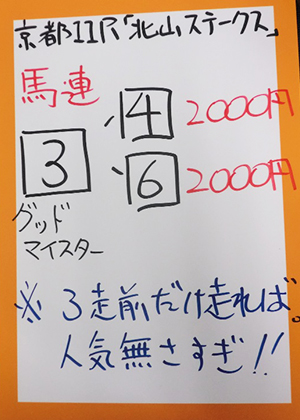 京都11R「北山ステークス」
馬連
3 4 2000円
6 2000円
グッド
マイスター
※ 3走前だけ走れば。
人気無さすぎ!!